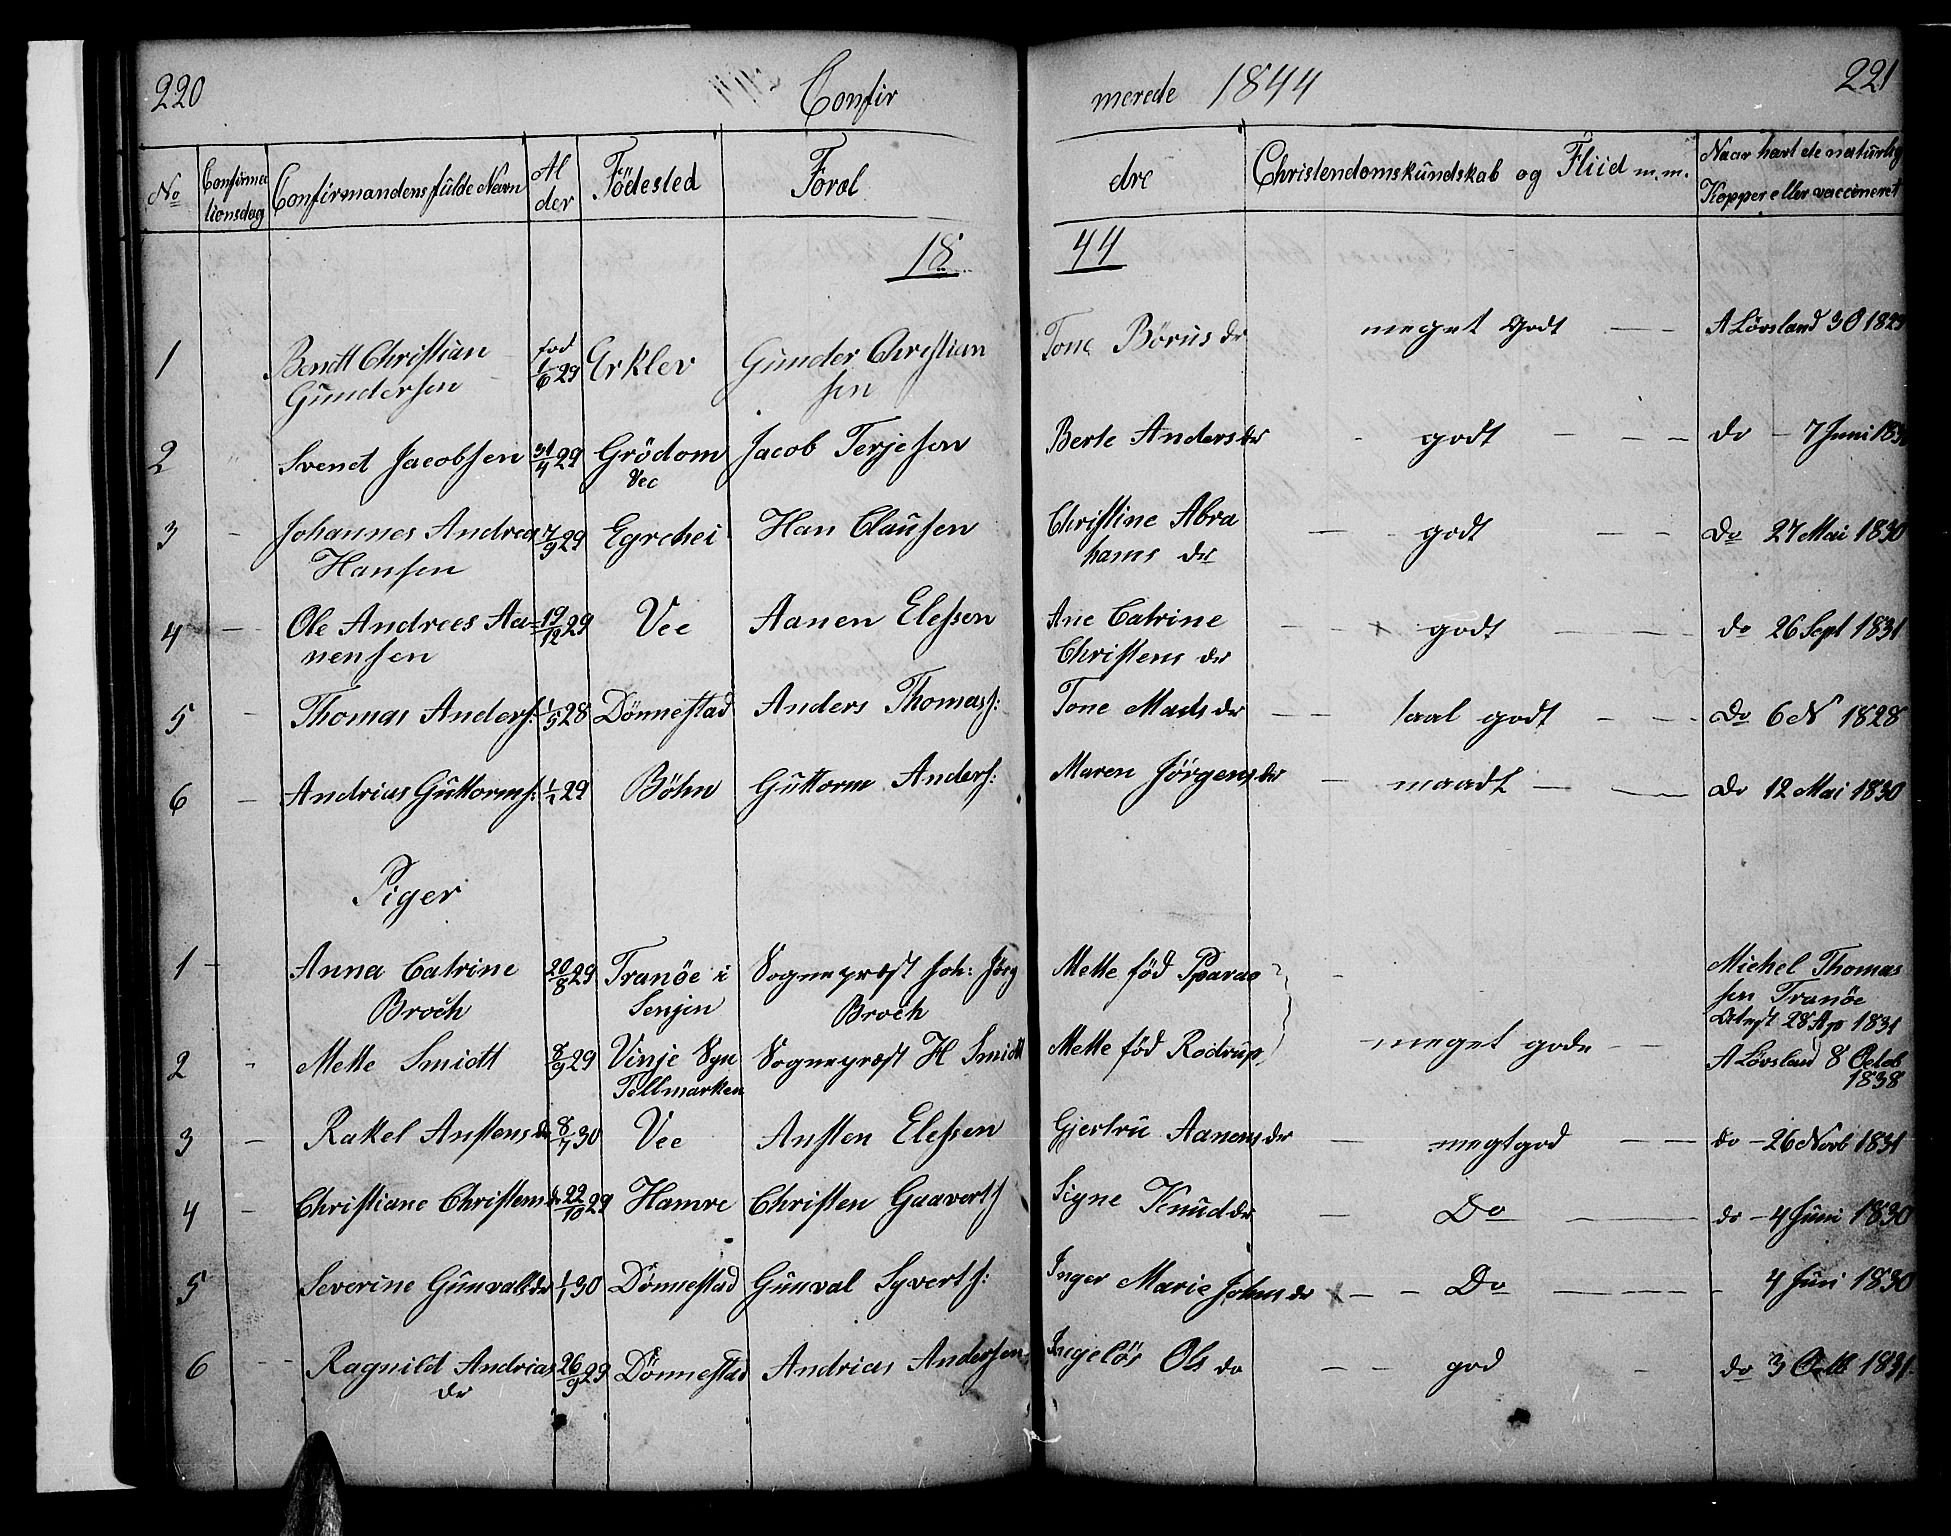 220 Confirmerede 1844 221
No Confirmationsdag Confirmandens fulde Navn Alder Födested Foræl dre Christendomskundskab og Fliid m.m. Naar havt de naturlig
Kopper eller vaccineret
18 44
1 Bendt Christian fød 1/6 29 Erklev Gunder Christian Tone Börus dr meget godt A Lövsland 30 1829
Gundersen sen
2 Svend Jacobsen 31/4 29 Grödom Jacob Terjesen Berte Anders dr godt do 7 Juni 183
Vee
3 Johannes Andreas 7/9 29 Egrehei Han Clausen Christine Abra godt Do 27 Mai 1830
Hansen hams dr
4 Ole Andrees Aa= 19/12 29 Vee Aanen Elessen Ane Catrine x godt do 26 Sept 1831
nensen Christens dr
5 Thomas Anders: 1/5 28 Dönnestad Anders Thomass: Tone Mads dr taal godt Do 6 N 1828
6 Andrias Guttorms: 1/1 29 Böhn Guttorm Anders: Maren Jörgens dr maadt Do 12 Mai 1830
Piger
1 Anna Catrine 20/8 29 Tranöe i Sognepræst Joh: Jörg Mette föd Michel Thomas
Broch Senjen Broch sen Tranöe
Attest 28 Ap 1831
2 Mette Smidt 8/9 29 Vinje Sogn Sognepræst H Smidt Mette föd Rodrup meget gode A Lövsland 8 Octob
Tellmarken 1838
3 Rakel Anstens dr 8/7 30 Vee Ansten Elessen Gjertru Aanens dr megtgod do 26 Novb 1831
4 Christiane Christens dr 22/10 29 Hamre Christen Gaaverts Signe Knud dr Do do 4 Juni 1830
5 Severine Gunvals dr 1/1 30 Dönnestad Gunval Syverts: Inger Marie Johns dr x Do 4 Juni 1830
6 Ragnild Andrias 26/9 29 Dönnestad Andrias Andersen Ingelös Ols do god do 3 Octb 1831
dr